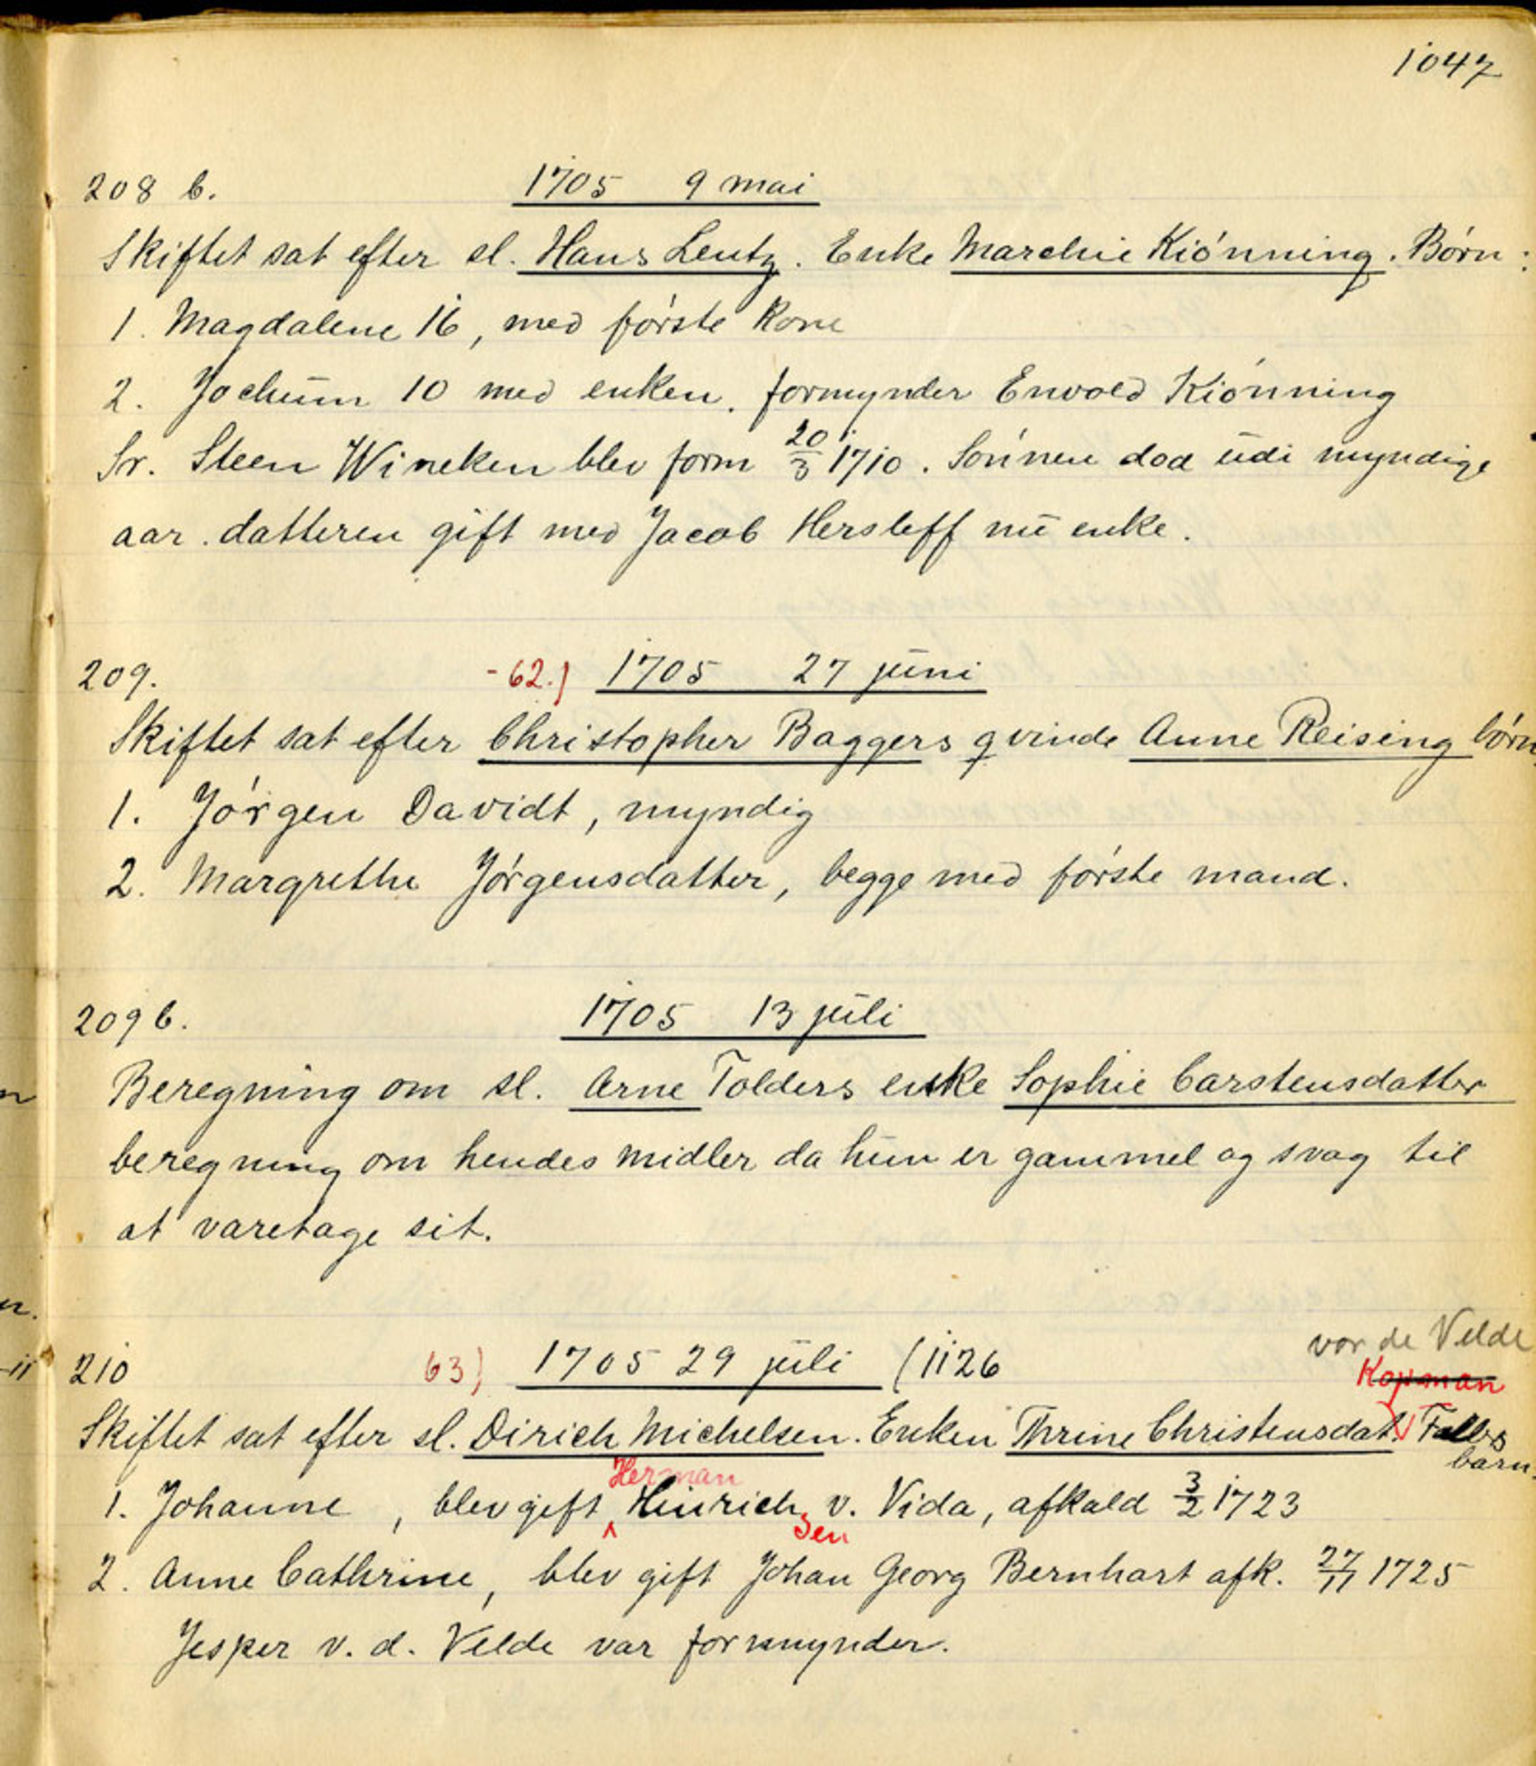 1047
208 b. 1705 9 mai
Skiftet sat efter sl. Hans Lentz. Enke Marchie Kiónning. Børn:
1. Magdalene 16, med fórste Kone
2. Jochum 10 med enken. formynder Envold Kiónning
Sr. Steen Wineken blev form 20/3 1710. Sónnen dod udi myndige
aar. datteren gift med Jacob Hersleff nu enke.
209. -62.) 1705 27 juni
Skiftet sat efter Christopher Baggers qvinde Anne Reising børn
1. Jórgen Davidt, myndig
2. Margrethe Jórgensdatter, begge med fórste mand.
209 b. 1705 13 juli
Beregning om sl. Arne Tolders enke Sophie Carstensdatter
beregning om hendes midler da hun er gammel og svag til
at varetage sit.
vor de Velde
210 63) 1705 29 juli (1126 Kopman
Skiftet sat efter sl. Dirich Michelsen. Enken Thrine Christensdat. Falles
barn.
Herman
1. Johanne, blev gift Hinrich v. Vida, afkald 3/2 1723
sen
2. Anne Cathrine, blev gift Johan Georg Bernhart afk. 27/11 1725
Jesper v. d. Velde var formynder.